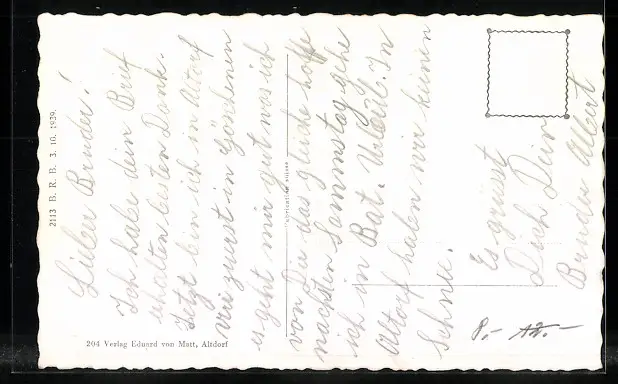 Lieber Bruder!
Ich habe dein Brief
erhalten besten Dank.
Jetzt bin ich in Altorf
zuerst in Göschenen
es geht mir gut was ich
von Dir das gleiche hoffe
nächsten Sammstag gehe
ich in Bat. Urlaub. In
Altorf haben wir keinen
Schnee.
Es grüsst
Dich Dein
Bruder Albert
2113 B. R. B. 3. 10. 1939.
204 Verlag Eduard von Matt, Altdorf